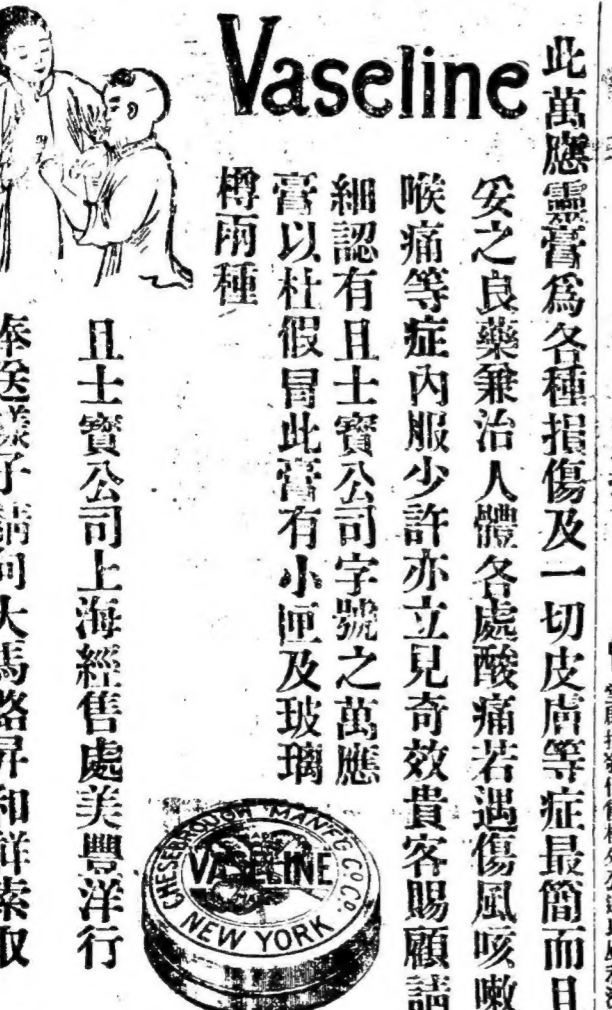 Vaseline
此萬應靈膏爲各種損傷及一切皮膚等症最簡而且
妥之良藥兼治人體各處酸痛若遇傷風咳嗽
喉痛等症內服少許亦立見奇效貴客賜顧請
細認有且士寶公司字號之萬應
膏以杜假冒此膏有小匣及玻璃
樽兩種
且士寶公司上海經售處美豐洋行
奉送樣子請向大馬路昇和祥索取
CHESEBROUGH MANF'G CO. CO.
VASELINE
NEW YORK